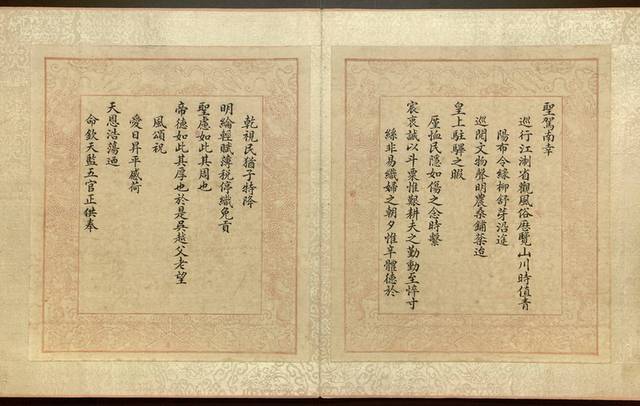 聖駕南幸
巡行江浙省觀風俗歷覽山川時值青
陽布令綠柳舒芽沿途
巡閱文物聲明農桑鋪菜迨
皇上駐驆之暇
厪恤民隱如傷之念時繫
宸衷誠以斗粟惟艱耕夫之勤動至悴寸
絲非易織婦之朝夕惟辛體德於
乾視民猶子特降
明綸輕賦薄税停織免貢
聖慮如此其周也
帝德如此其厚也於是吳越父老望
風頌祝
愛日昇平感荷
天恩浩蕩迺
命欽天監五官正供奉